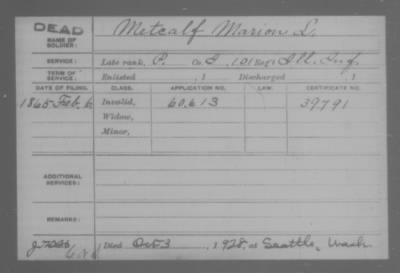 DEAD
NAME OF SOLDIER: Metcalf Marion L.
SERVICE: Late rank, P. Co. I, 101 Reg't Ill. Inf.
TERM OF SERVICE: Enlisted , 1 Discharged , 1
DATE OF FILING. CLASS. APPLICATION NO. LAW. CERTIFICATE NO.
1865 Feb. 6 Invalid, 60,613 39791
Widow,
Minor,
ADDITIONAL SERVICES:
REMARKS:
Died Oct 3 , 1928, at Seattle, Wash.